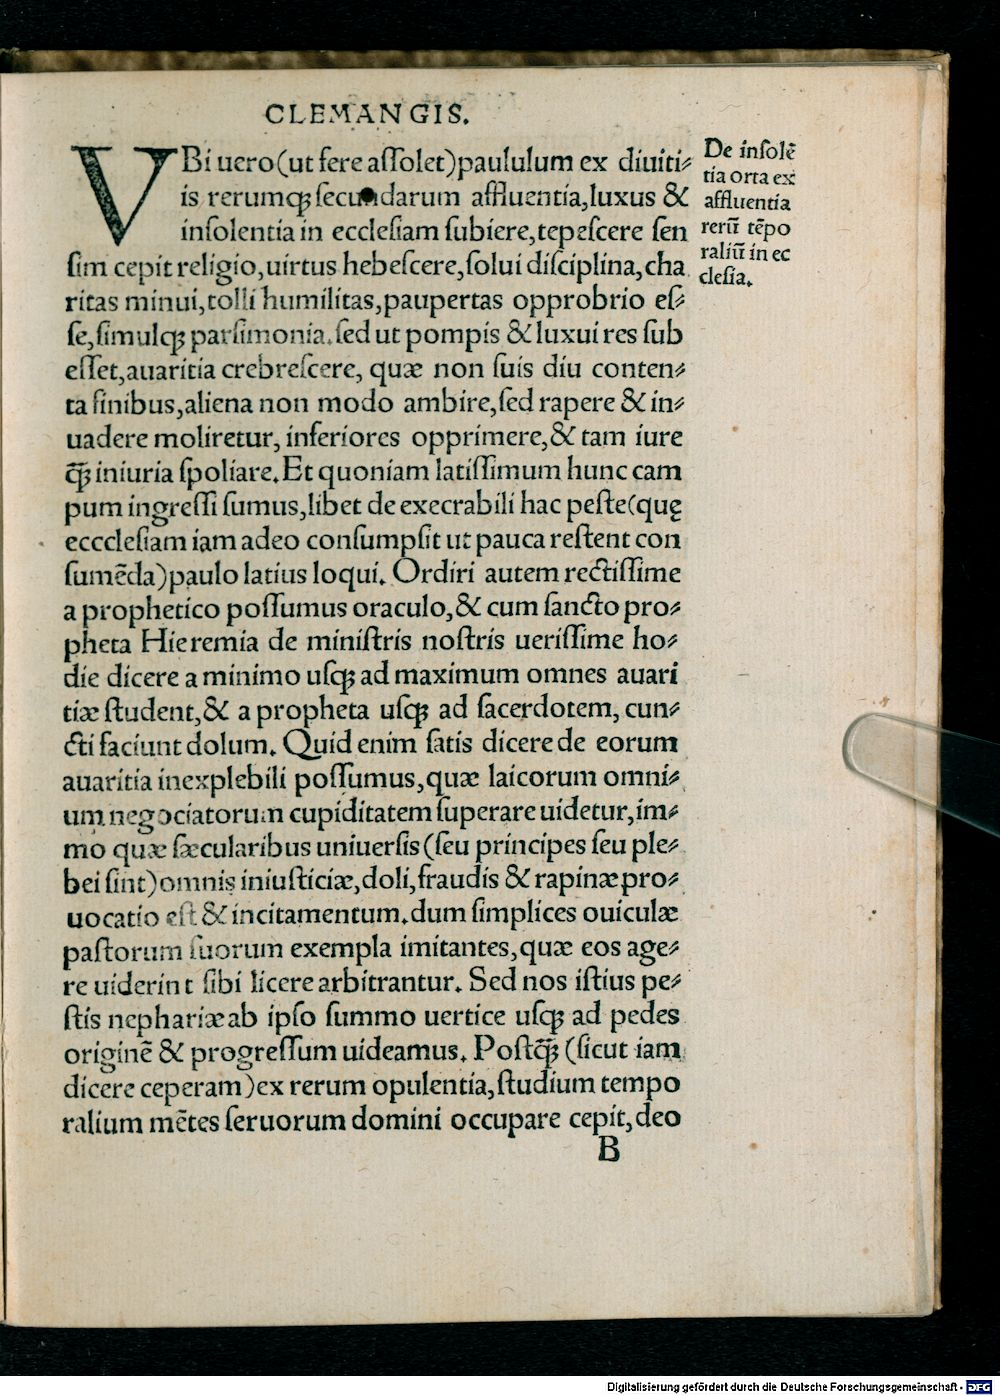 CLEMANGIS.
VBi uero(ut fere aſſolet)paululum ex diuiti⸗
is rerumqꝫ ſecundarum affluentia,luxus &
inſolentia in eccleſiam ſubiere,tepeſcere ſen
ſim cepit religio,uirtus hebeſcere,ſolui diſciplina,cha
ritas minui,tolli humilitas,paupertas opprobrio eſ⸗
ſe,ſimulqꝫ parſimonia.ſed ut pompis & luxui res ſub
eſſet,auaritia crebreſcere, quæ non ſuis diu conten⸗
ta finibus,aliena non modo ambire,ſed rapere & in⸗
uadere moliretur, inferiores opprimere,& tam iure
q̃ꝫ iniuria ſpoliare.Et quoniam latiſſimum hunc cam
pum ingreſſi ſumus,libet de execrabili hac peſte(quę
ecccleſiam iam adeo conſumpſit ut pauca reſtent con
ſumẽda)paulo latius loqui. Ordiri autem rectiſſime
a prophetico poſſumus oraculo,& cum ſancto pro⸗
pheta Hieremia de miniſtris noſtris ueriſſime ho⸗
die dicere a minimo uſqꝫ ad maximum omnes auari
tiæ ſtudent,& a propheta uſqꝫ ad ſacerdotem, cun⸗
cti faciunt dolum. Quid enim ſatis dicere de eorum
auaritia inexplebili poſſumus,quæ laicorum omni⸗
um negociatorum cupiditatem ſuperare uidetur,im⸗
mo quæ ſæcularibus uniuerſis(ſeu principes ſeu ple⸗
bei ſint)omnis iniuſticiæ,doli,fraudis & rapinæ pro⸗
uocatio eſt & incitamentum.dum ſimplices ouiculæ
paſtorum ſuorum exempla imitantes,quæ eos age⸗
re uiderint ſibi licere arbitrantur. Sed nos iſtius pe⸗
ſtis nephariæ ab ipſo ſummo uertice uſqꝫ ad pedes
originẽ & progreſſum uideamus. Poſtq̃ꝫ (ſicut iam
dicere ceperam)ex rerum opulentia,ſtudium tempo
ralium mẽtes ſeruorum domini occupare cepit,deo
B
De inſolẽ
tia orta ex
affluentia
rerũ tẽpo
raliũ in ec
cleſia.
Digitalisierung gefördert durch die Deutsche Forschungsgemeinschaft - DFG